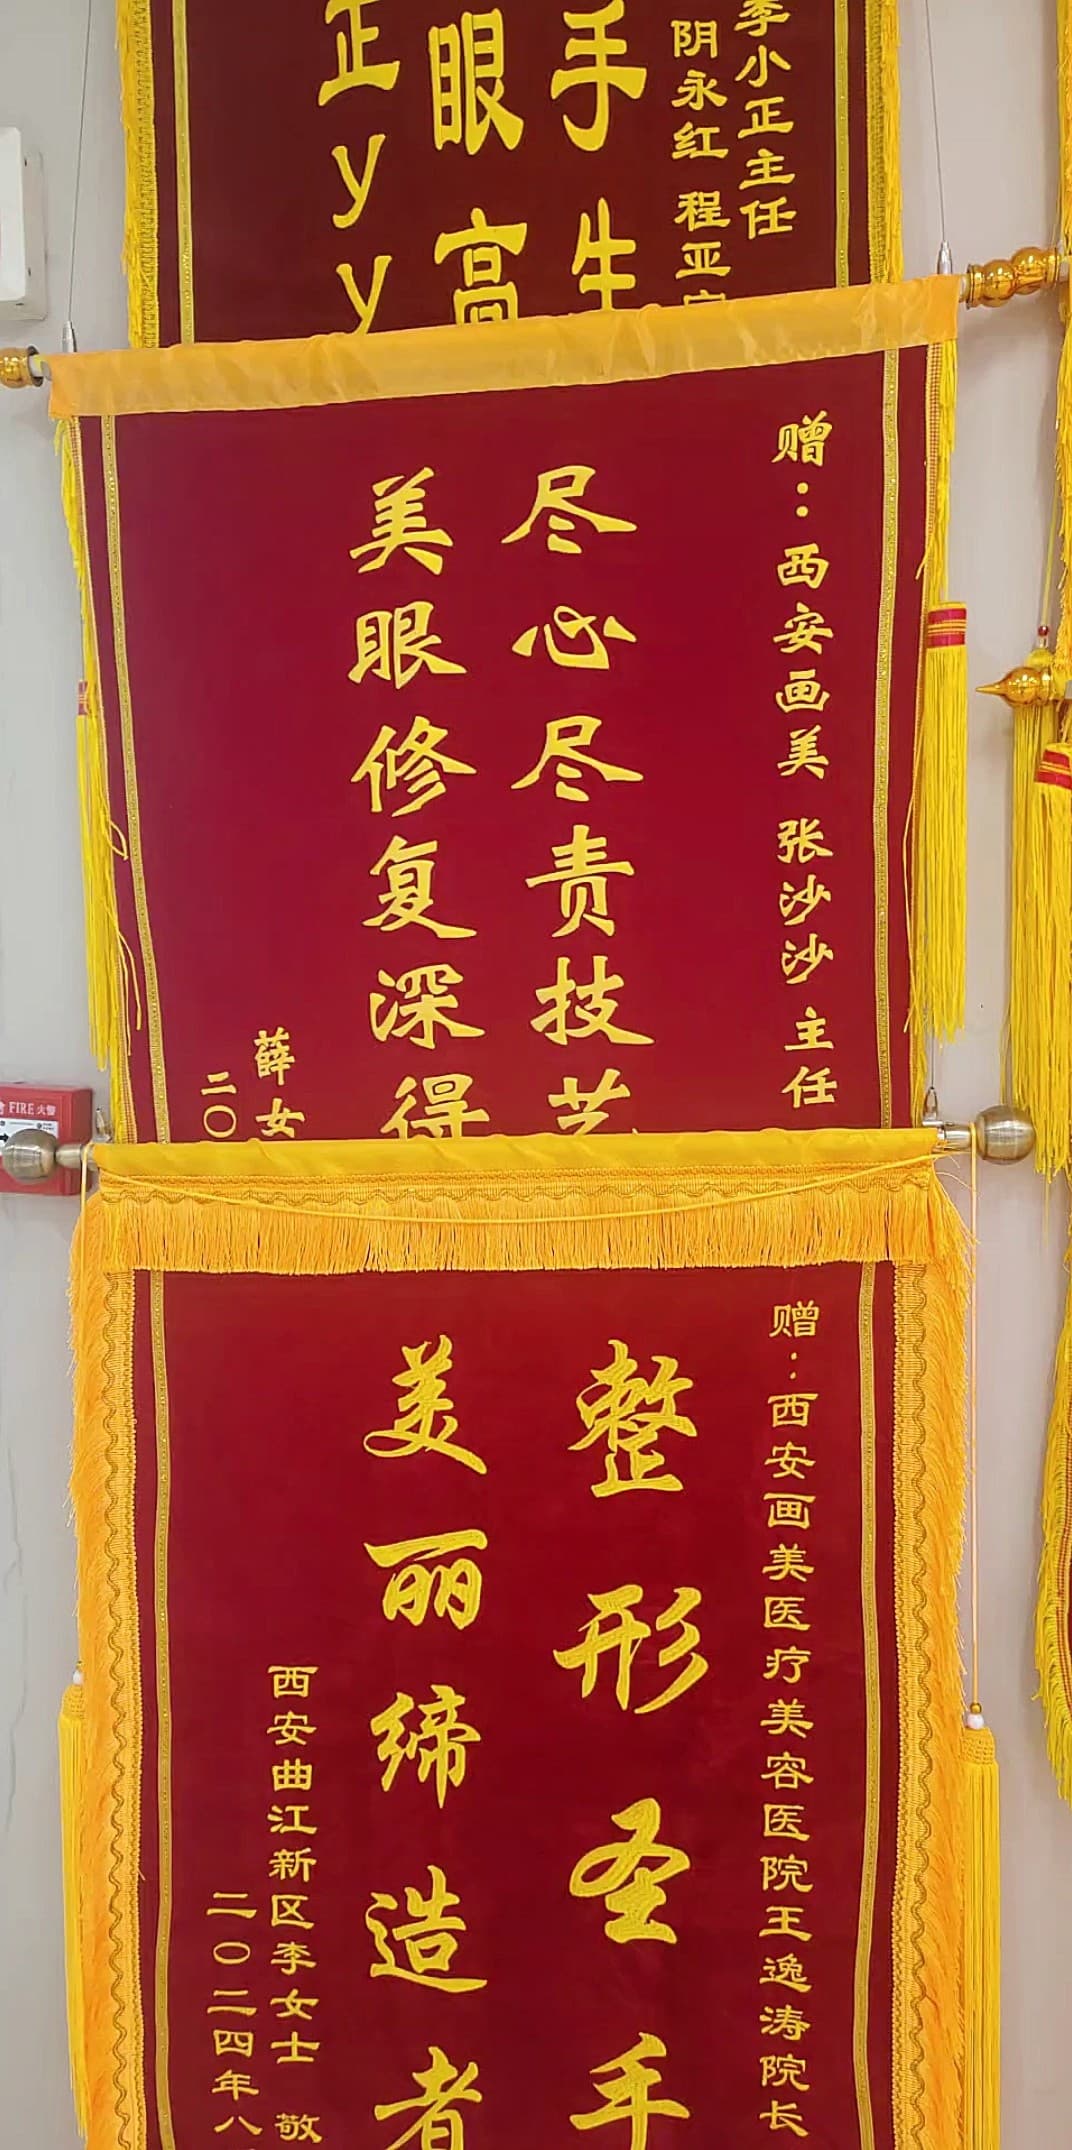 李小正主任
阴永红 程亚
手生
眼高
正yy
赠：西安画美 张沙沙 主任
尽心尽责技艺
美眼修复深得
薛女
二〇
FIRE 火警
赠：西安画美医疗美容医院王逸涛院长
整形圣手
美丽缔造者
西安曲江新区李女士 敬
二〇二四年八